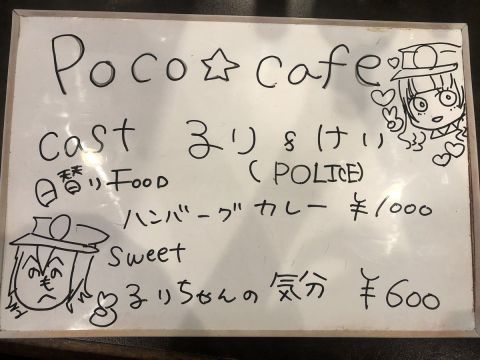 Poco☆cafe
cast るり & けい
(POLICE)
日替り FOOD
ハンバーグカレー ¥1000
sweet
るりちゃんの気分 ¥600